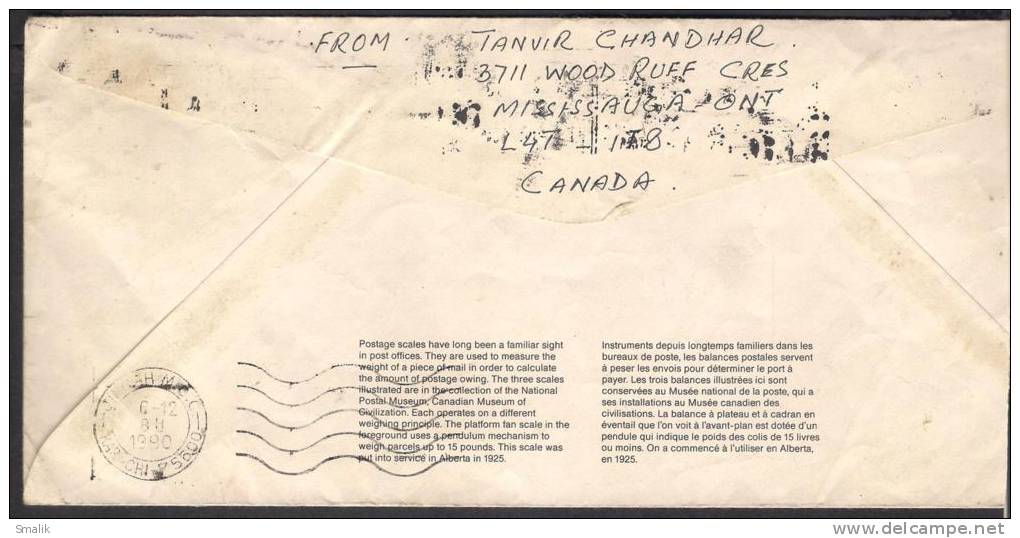 FROM TANVIR CHANDHAR.
3711 WOOD RUFF CRES
MISSISSAUGA - ONT
L4T - 1T8
CANADA.
Postage scales have long been a familiar sight
in post offices. They are used to measure the
weight of a piece of mail in order to calculate
the amount of postage owing. The three scales
illustrated are in the collection of the National
Postal Museum, Canadian Museum of
Civilization. Each operates on a different
weighing principle. The platform fan scale in the
foreground uses a pendulum mechanism to
weigh parcels up to 15 pounds. This scale was
put into service in Alberta in 1925.
Instruments depuis longtemps familiers dans les
bureaux de poste, les balances postales servent
à peser les envois pour déterminer le port à
payer. Les trois balances illustrées ici sont
conservées au Musée national de la poste, qui a
ses installations au Musée canadien des
civilisations. La balance à plateau et à cadran en
éventail que l'on voit à l'avant-plan est dotée d'un
pendule qui indique le poids des colis de 15 livres
ou moins. On a commencé à l'utiliser en Alberta,
en 1925.
6-12
1990
Smalik
delcampe.net